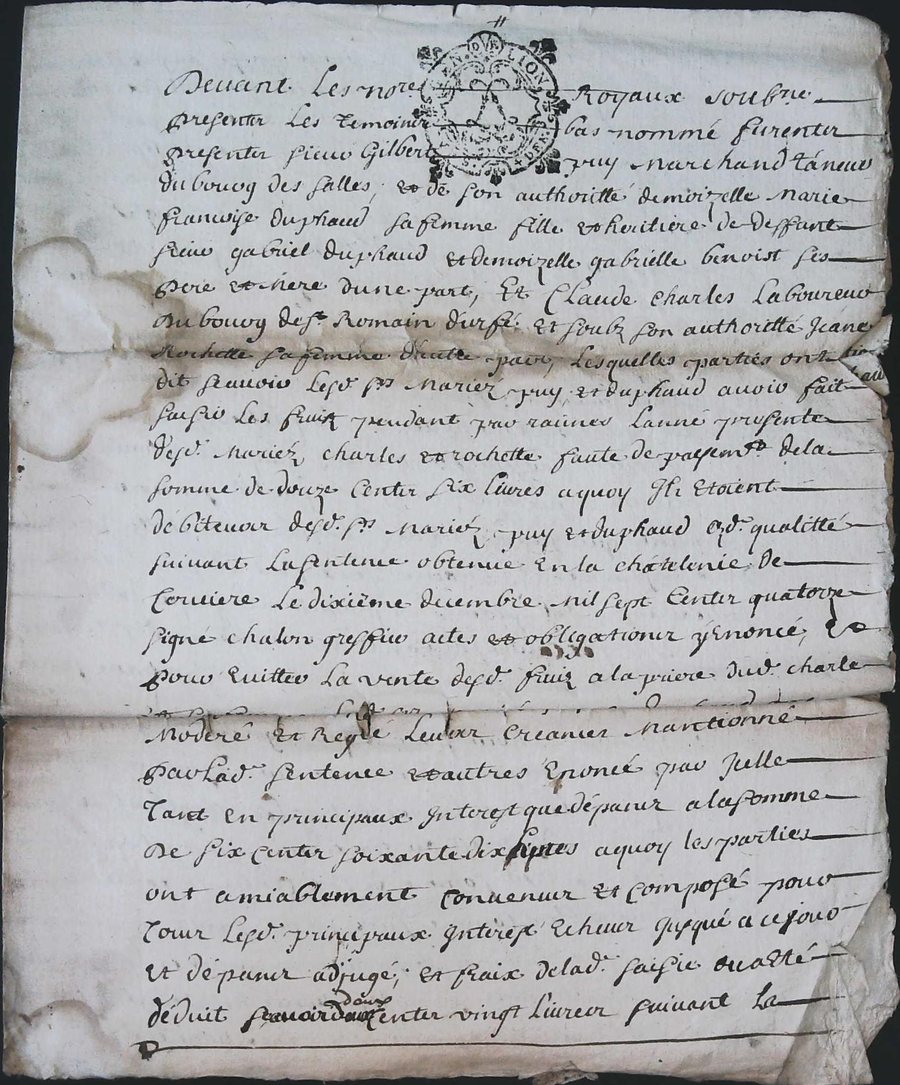 GEN DE LION
4 DEN
Devant Les nore Royaux soubne
presentz Les temoins bas nommé furentz
presentz sieur Gilbert puy Marchand táneur
du bourg des salles, et de son authoritté demoizelle Marie
francoise duphaud sa femme fille et heritiere de deffunt
sieur gabriel duphaud et demoizelle gabrielle benoist ses
pere et mere dune part, Et Claude Charles Laboureur
du bourg de st Romain durfé et soubz son authoritté Jeane
Rochette sa femme dautre part, Lesquelles parties ont
dit scavoir Lesd. srs Mariéz puy et duphaud avoir fait
saisir Les fruitz pendant par racines Lanné presente
desd. Mariéz charles et rochette faute de paiemt de la
somme de douze Centz six livres a quoy Ilz Etoient
débiteurs desd. srs Mariéz puy et duphaud Esd. qualitté
suivant La sentence obtenue En la châtelenie de
Cerviere Le dixiéme decembre Mil sept Centz quatorze
signé chalon greffier actes et obligations y Enoncé, Et
pour Evitter La vente desd. fruiz a la priere dud. charle
Moderé Et Reglé Leurs Creances Mantionné
par Lad. sentence et autres Enoncé par Icelle
Tant En principaux Interest que dépans a la somme
De six Centz soixante dix livres a quoy les parties
ont amiablement Convenus Et Composé pour
Tous Lesd. principaux Interest Echeus Jusqué a ce jour
et dépans adjugé, et fraix de lad. saisie
déduit scavoir deux Centz vingt Livres suivant La